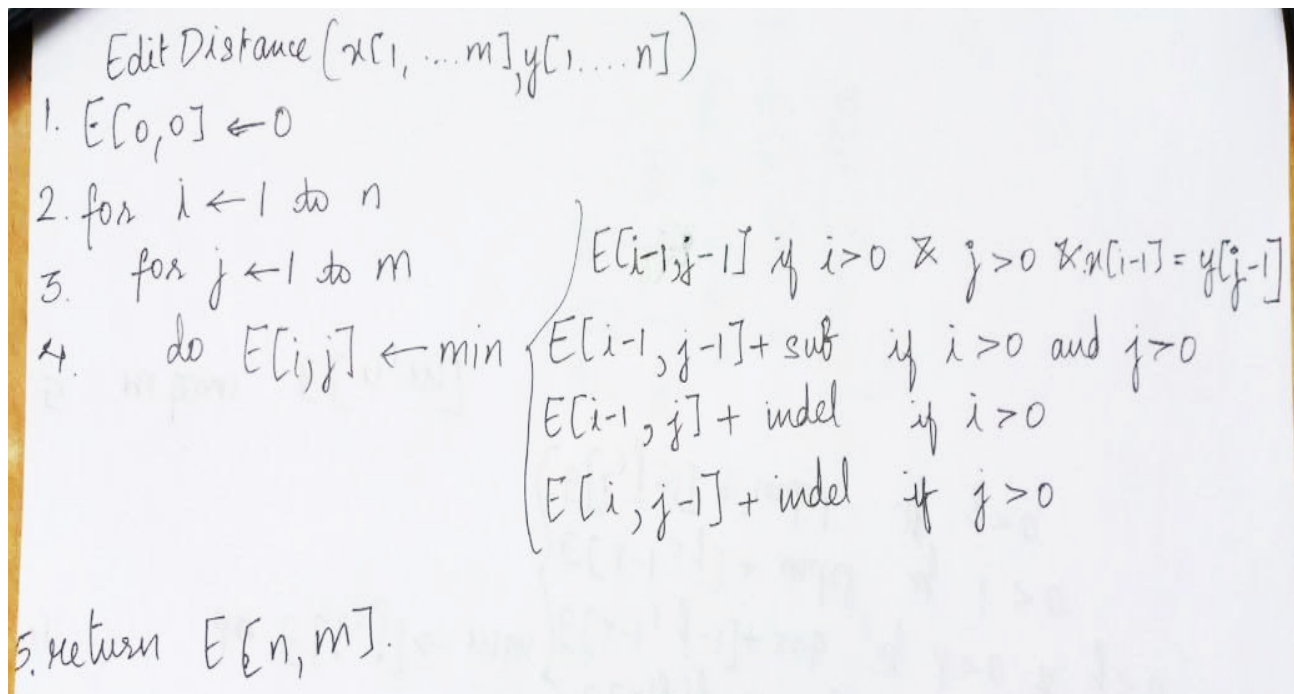 Edit Distance (x[1, ....m], y[1....n])
1. E[0,0] ← 0
2. for i ← 1 to n
3. for j ← 1 to m
E[i-1,j-1] if i>0 & j>0 & x[i-1] = y[j-1]
4. do E[i,j] ← min { E[i-1, j-1] + sub if i>0 and j>0
E[i-1, j] + indel if i>0
E[i, j-1] + indel if j>0
5. return E[n,m].